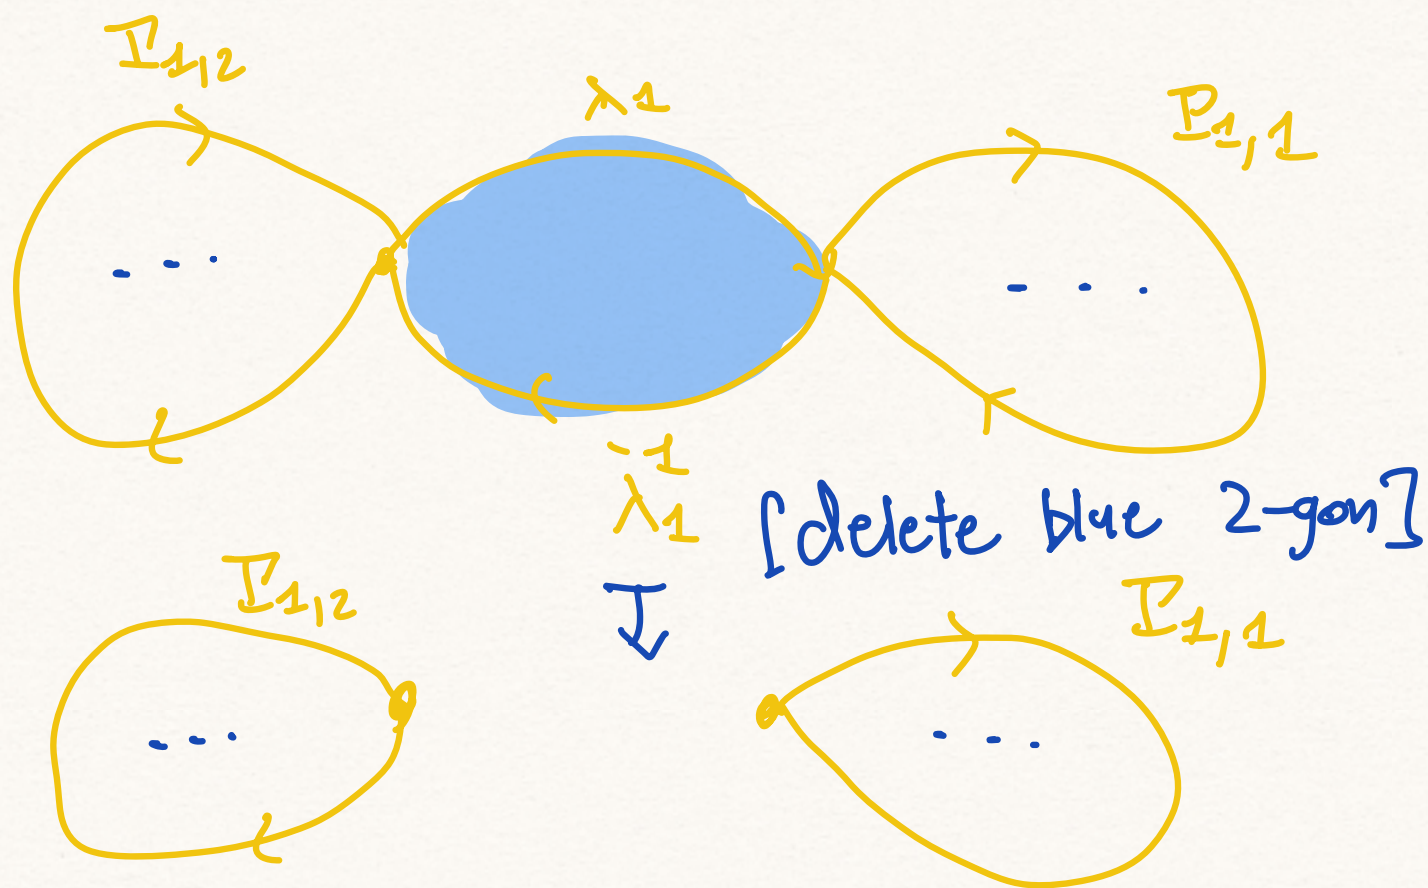 I₁,₂
λ1
P₁,₁
λ₁⁻¹
[delete blue 2-gon]
I₁,₂
I₁,₁